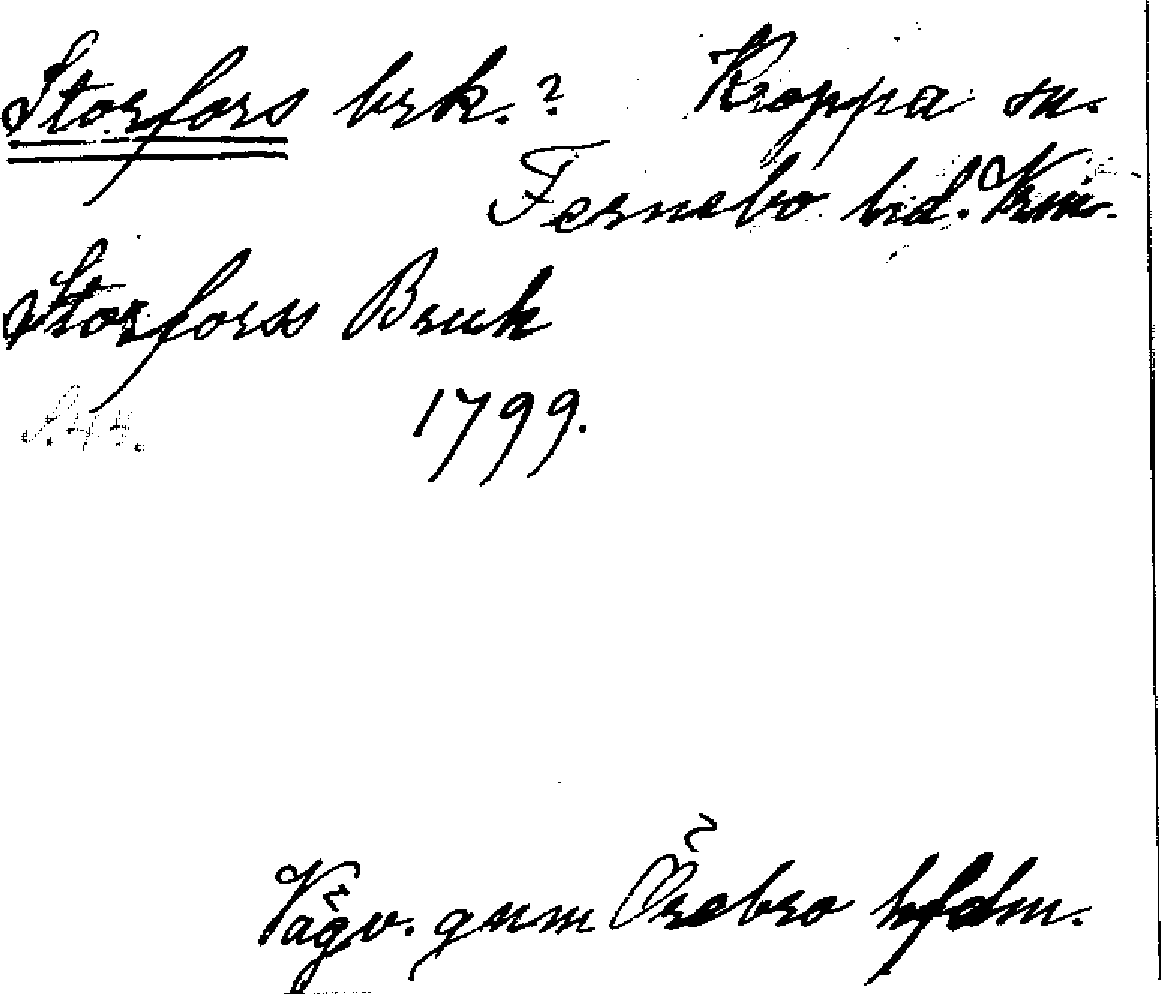 Storfors brk.? Kroppa sn.
Fernebo hd. Vrm.
Storforss Bruk
1799.
Vägv. gnm Örebro hfdm.